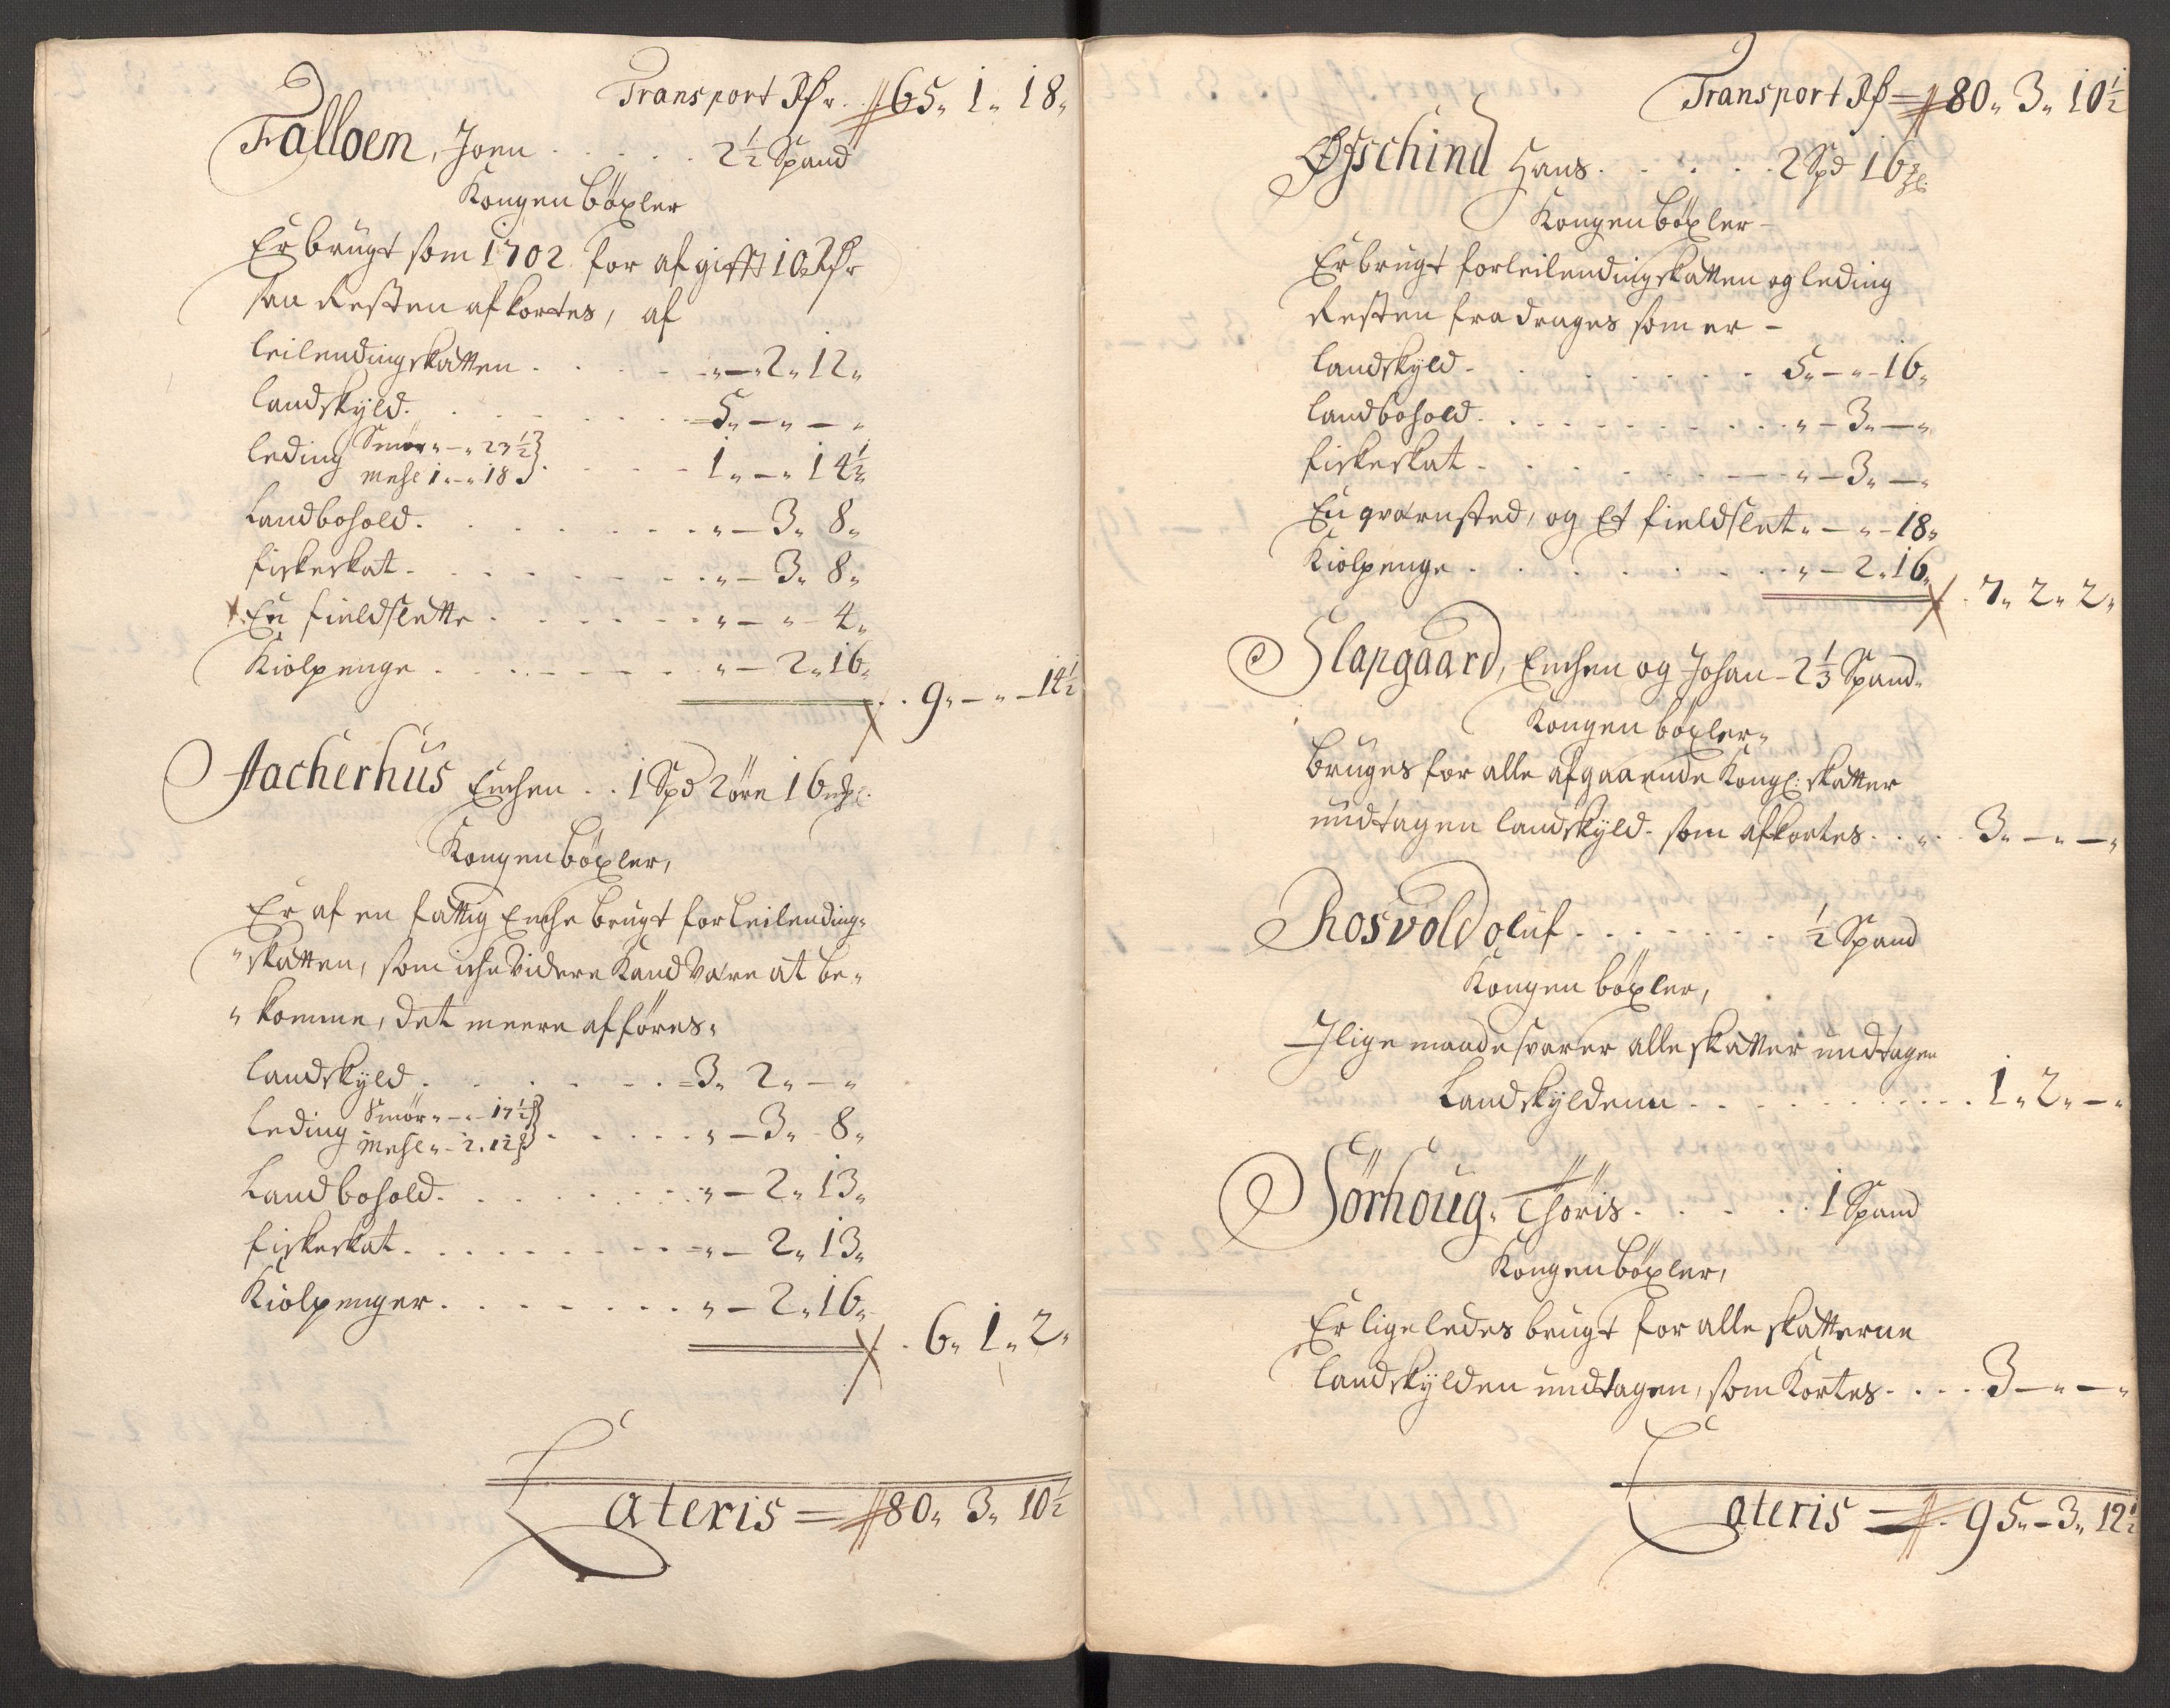 Transport Rdr 65„ 1„ 18„
Falloen, Joen . . . . 2½ Spand
Kongen böxler
Er brugt som 1702 for afgifft 10 Rdr
saa Resten afkortes, af
leilendingskatten . . . „—„2„ 12„
landskyld . . . 5„—„—„
leding Smör„—„23½
mehl 1„—„18 . . . 1„—„14½
Landbohold . . . „—3„ 8„
fiskeskat . . . „—3„ 8„
En fieldslette . . . „—„—4„
Kiölpenge . . . „—2„16„
9„—„—14½
Aacherhus Enchen . . 1 Spd 2 öre 16 mkl.
Kongen böxler,
Er af en fattig Enche brugt for leilending„
„skatten, som iche Videre Kand Være at be„
„komme, det meere afföres„
landskyld . . . 3„ 2„—„
leding Smör„—„17½
mehl„—2„12 . . . „—3„—8„
Landbohold . . . „—2„13„
fiskeskat . . . „—2„13„
Kiölpenger . . . „—2„16„
6„ 1„ 2„
Lateris = 80„ 3„ 10½
Transport Rd = 80„ 3„ 10½
Øfschind Hans . . . . 2 Spd 16 mkl.
Kongen böxler—
Er brugt for leilendingskatten og leding
Resten fradrages som er—
landskyld . . . 5„—„—16„
landbohold . . . „—3„—„
fiskeskat . . . „—3„—„
En qværnsted, og Et fieldslet„—„—18„
Kiölpenge . . . „—2„16„
7„ 2„ 2„
Slapgaard, Enchen og Johan—2⅓ Spand„
Kongen böxler„
Bruges for alle afgaaende Kongl: skatter
undtagen landskyld som afkortes . . . 3„—„—„
Rosvold oluf . . . ½ Spand
Kongen böxler,
Jlige maade svarer alle skatter undtagen
Landskyldenn . . . 1„ 2„—„
Sörhoug, Thöris . . . . 1 Spand
Kongen böxler,
Er ligeledes brugt for alle skatterne
landskylden undtagen, som Kortes . . . 3—„—„
Lateris = 95„—3„ 12½